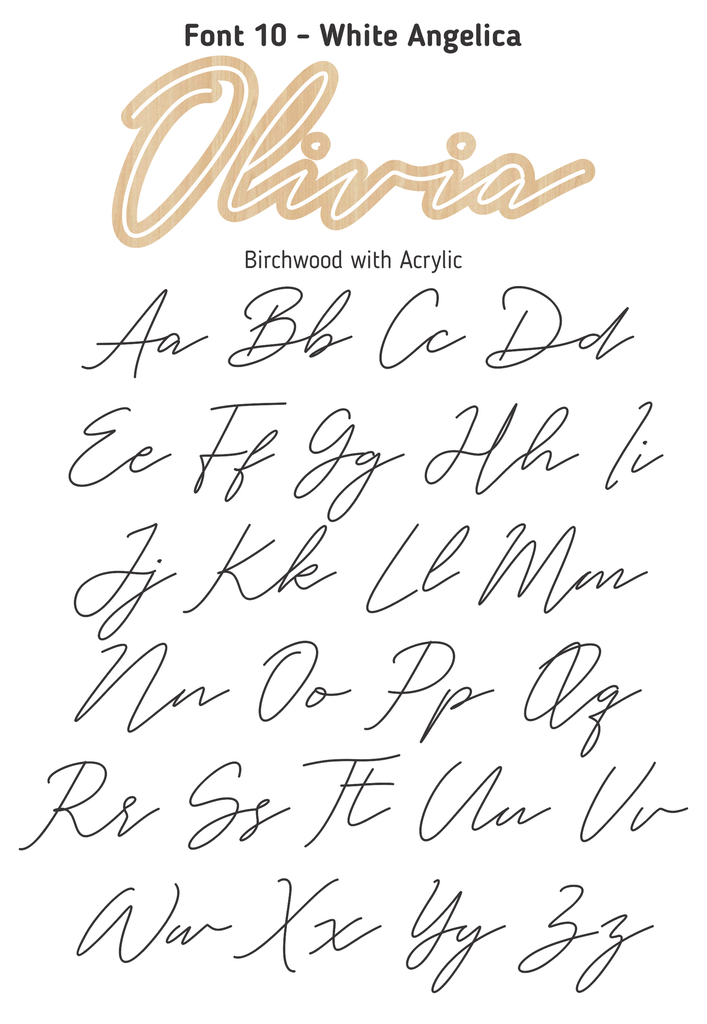 Font 10 - White Angelica
Olivia
Birchwood with Acrylic
Aa Bb Cc Dd
Ee Ff Gg Hh Ii
Jj Kk Ll Mm
Nn Oo Pp Qq
Rr Ss Tt Uu Vv
Ww Xx Yy Zz